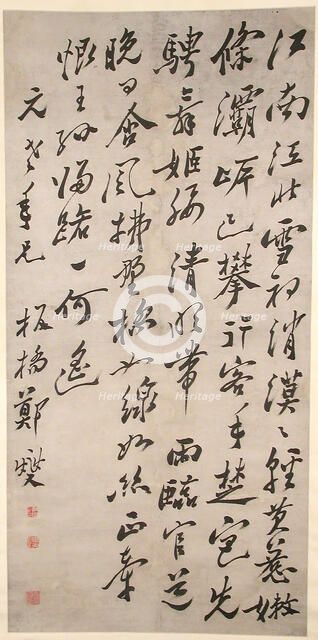 江南江北雪初消漠〻輕黃惹嫩
條灞岸已攀行客手楚宮先
騁舞姬腰清明帶雨臨官道
晚日含風拂野橋如線如絲正牽
恨王孫歸路一何遙
元老年兄 板橋鄭燮
Heritage
Heritage
Heritage
Heritage
Heritage
Heritage